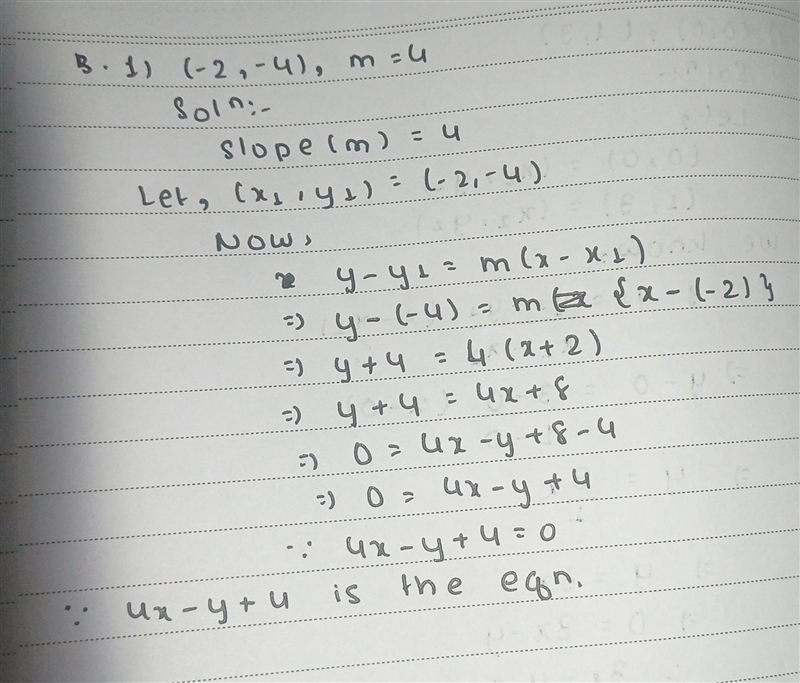 B. 1) (-2, -4), m = 4
Soln:-
Slope(m) = 4
Let, (x1, y1) = (-2, -4)
Now,
y - y1 = m(x - x1)
=) y - (-4) = m {x - (-2)}
=) y + 4 = 4 (x + 2)
=) y + 4 = 4x + 8
=) 0 = 4x - y + 8 - 4
=) 0 = 4x - y + 4
∵ 4x - y + 4 = 0
∵ 4x - y + 4 is the eqn.